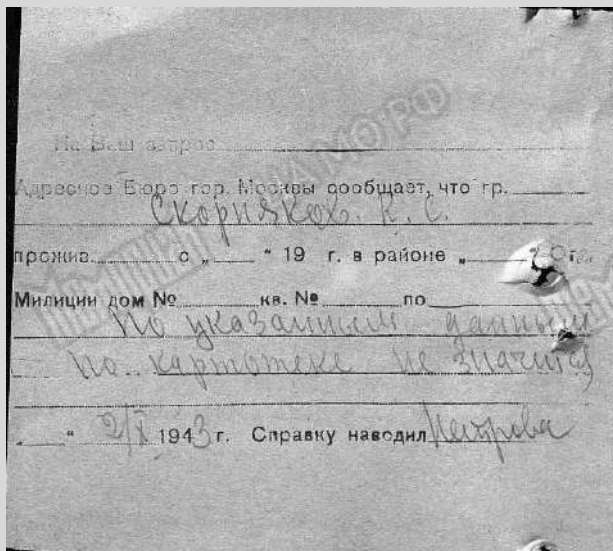 На Ваш запрос
Адресное Бюро гор. Москвы сообщает, что гр.
Скорняков. К. С.
прожив. с „ “ 19 г. в районе „ “ Отд.
Милиции дом № кв. № по
по указанным данным
по картотеке не значится
„ “ 2/X 1943 г. Справку наводил Петрова